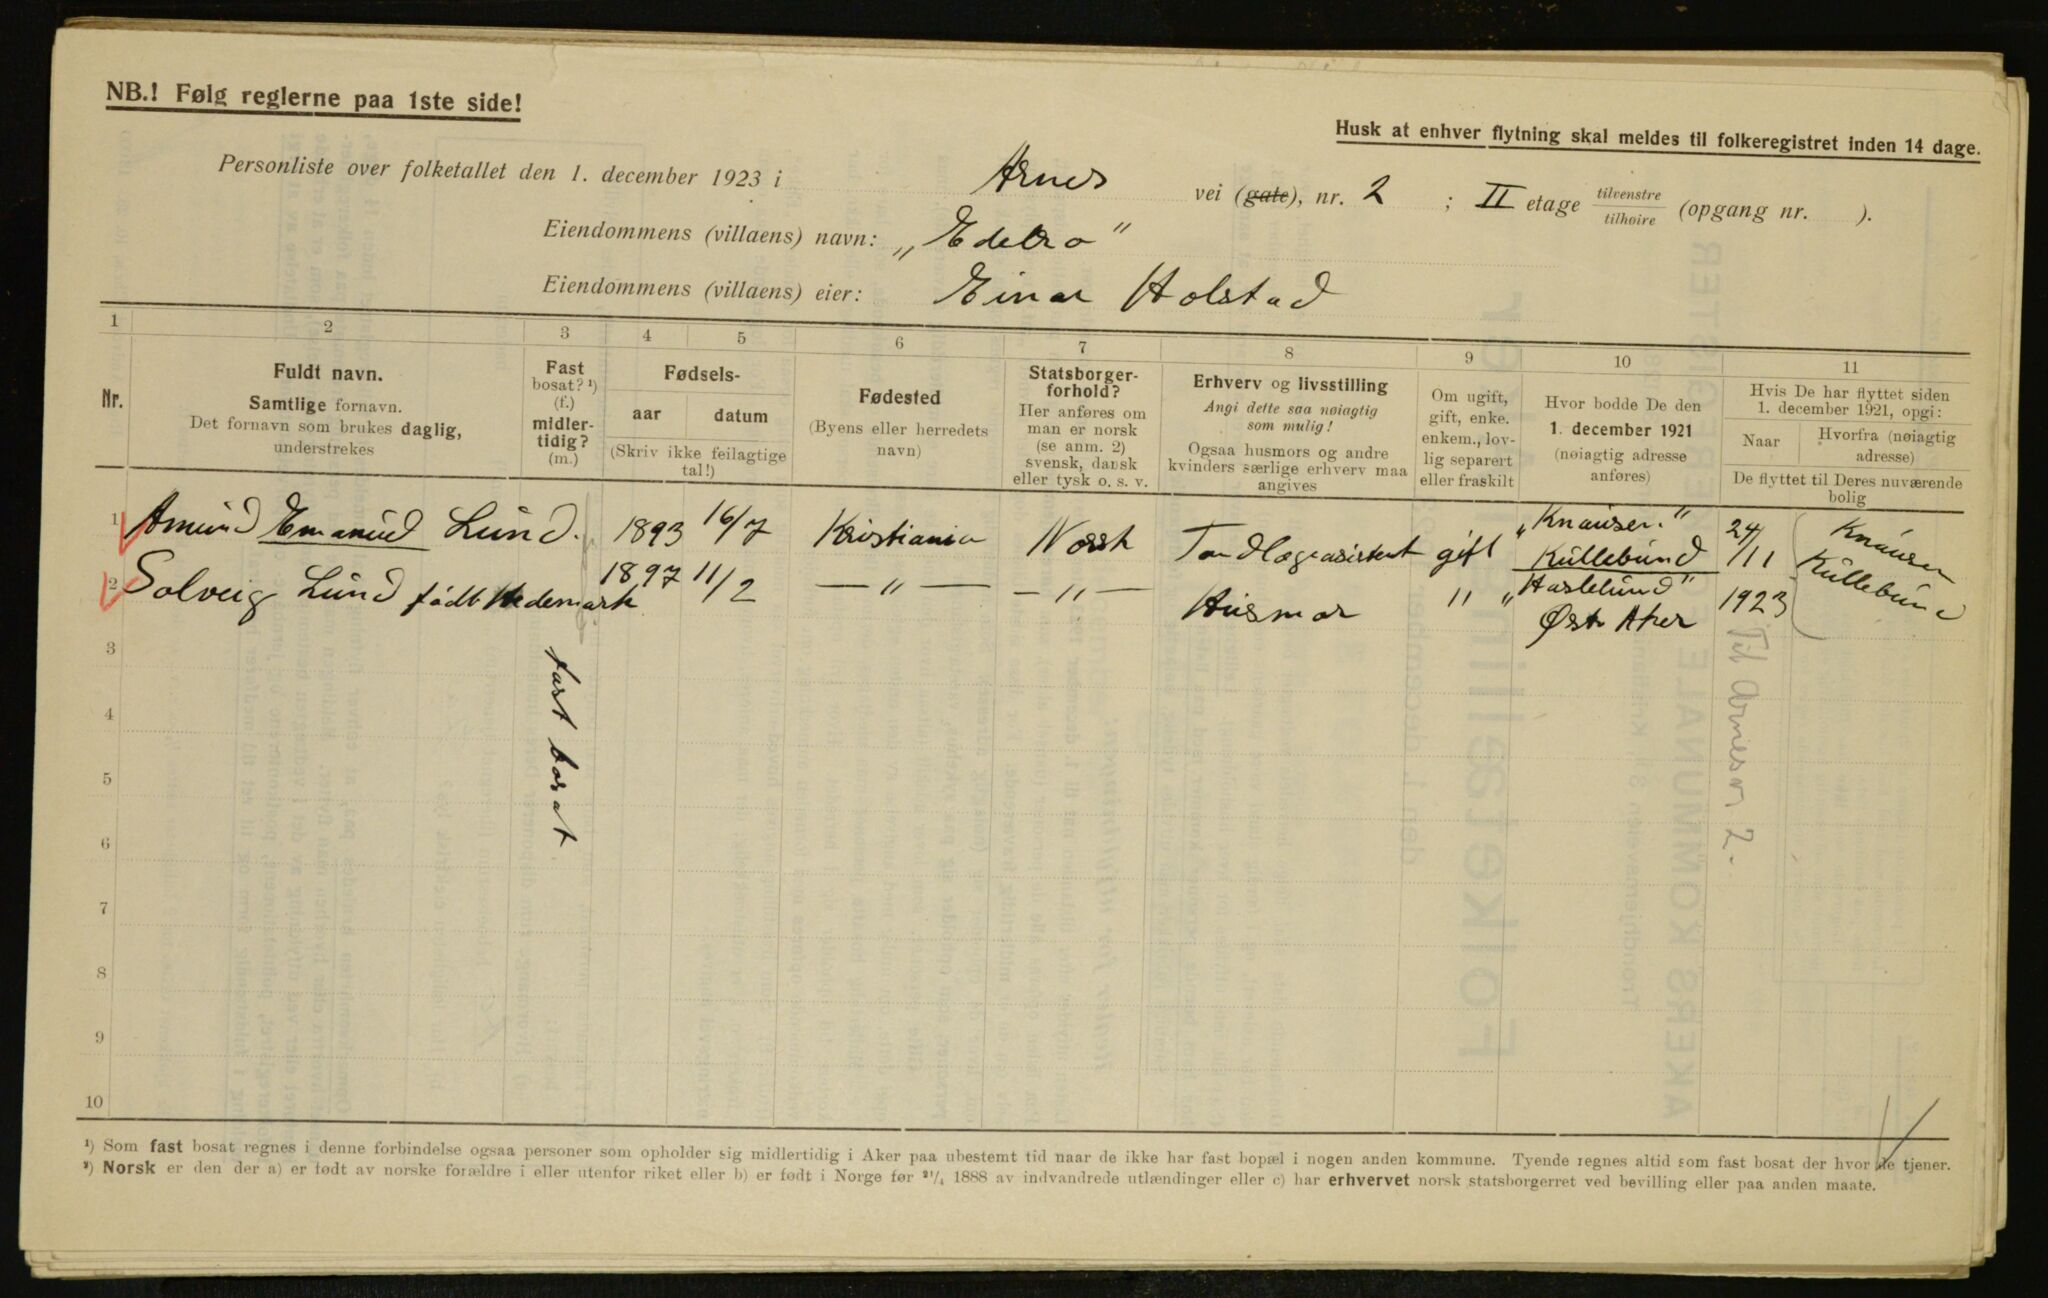 NB.! Følg reglerne paa 1ste side!
Husk at enhver flytning skal meldes til folkeregistret inden 14 dage.
Personliste over folketallet den 1. december 1923 i Arnes vei (gate), nr. 2 ; II etage tilvenstre / tilhøire (opgang nr. ).
Eiendommens (villaens) navn: „Edelro“
Eiendommens (villaens) eier: Einar Holstad
1 2 3 4 5 6 7 8 9 10 11
Nr.
Fuldt navn.
Samtlige fornavn.
Det fornavn som brukes daglig,
understrekes
Fast
bosat? ¹)
(f.)
midler-
tidig?
(m.)
Fødsels-
aar datum
(Skriv ikke feilagtige
tal!)
Fødested
(Byens eller herredets
navn)
Statsborger-
forhold?
Her anføres om
man er norsk
(se anm. 2)
svensk, dansk
eller tysk o. s. v.
Erhverv og livsstilling
Angi dette saa nøiagtig
som mulig!
Ogsaa husmors og andre
kvinders særlige erhverv maa
angives
Om ugift,
gift, enke.
enkem., lov-
lig separert
eller fraskilt
Hvor bodde De den
1. december 1921
(nøiagtig adresse
anføres)
Hvis De har flyttet siden
1. december 1921, opgi:
Naar
Hvorfra (nøiagtig
adresse)
De flyttet til Deres nuværende
bolig
1 Amund Emanuel Lund. 1893 16/7 Kristiania Norsk Tandlægeassistent gift „Knausen.“ Kullebund 24/11 Knausen Kullebund
2 Solveig Lund født Hedemark 1897 11/2 — „ — — „ — Husmor „ „Haslelund“ Østr Aker 1923
fast bosat
Til Arnesv 2.
3
4
5
6
7
8
9
10
¹) Som fast bosat regnes i denne forbindelse ogsaa personer som opholder sig midlertidig i Aker paa ubestemt tid naar de ikke har fast bopæl i nogen anden kommune. Tyende regnes altid som fast bosat der hvor de tjener.
²) Norsk er den der a) er født av norske forældre i eller utenfor riket eller b) er født i Norge før ²¹/₄ 1888 av indvandrede utlændinger eller c) har erhvervet norsk statsborgerret ved bevilling eller paa anden maate.